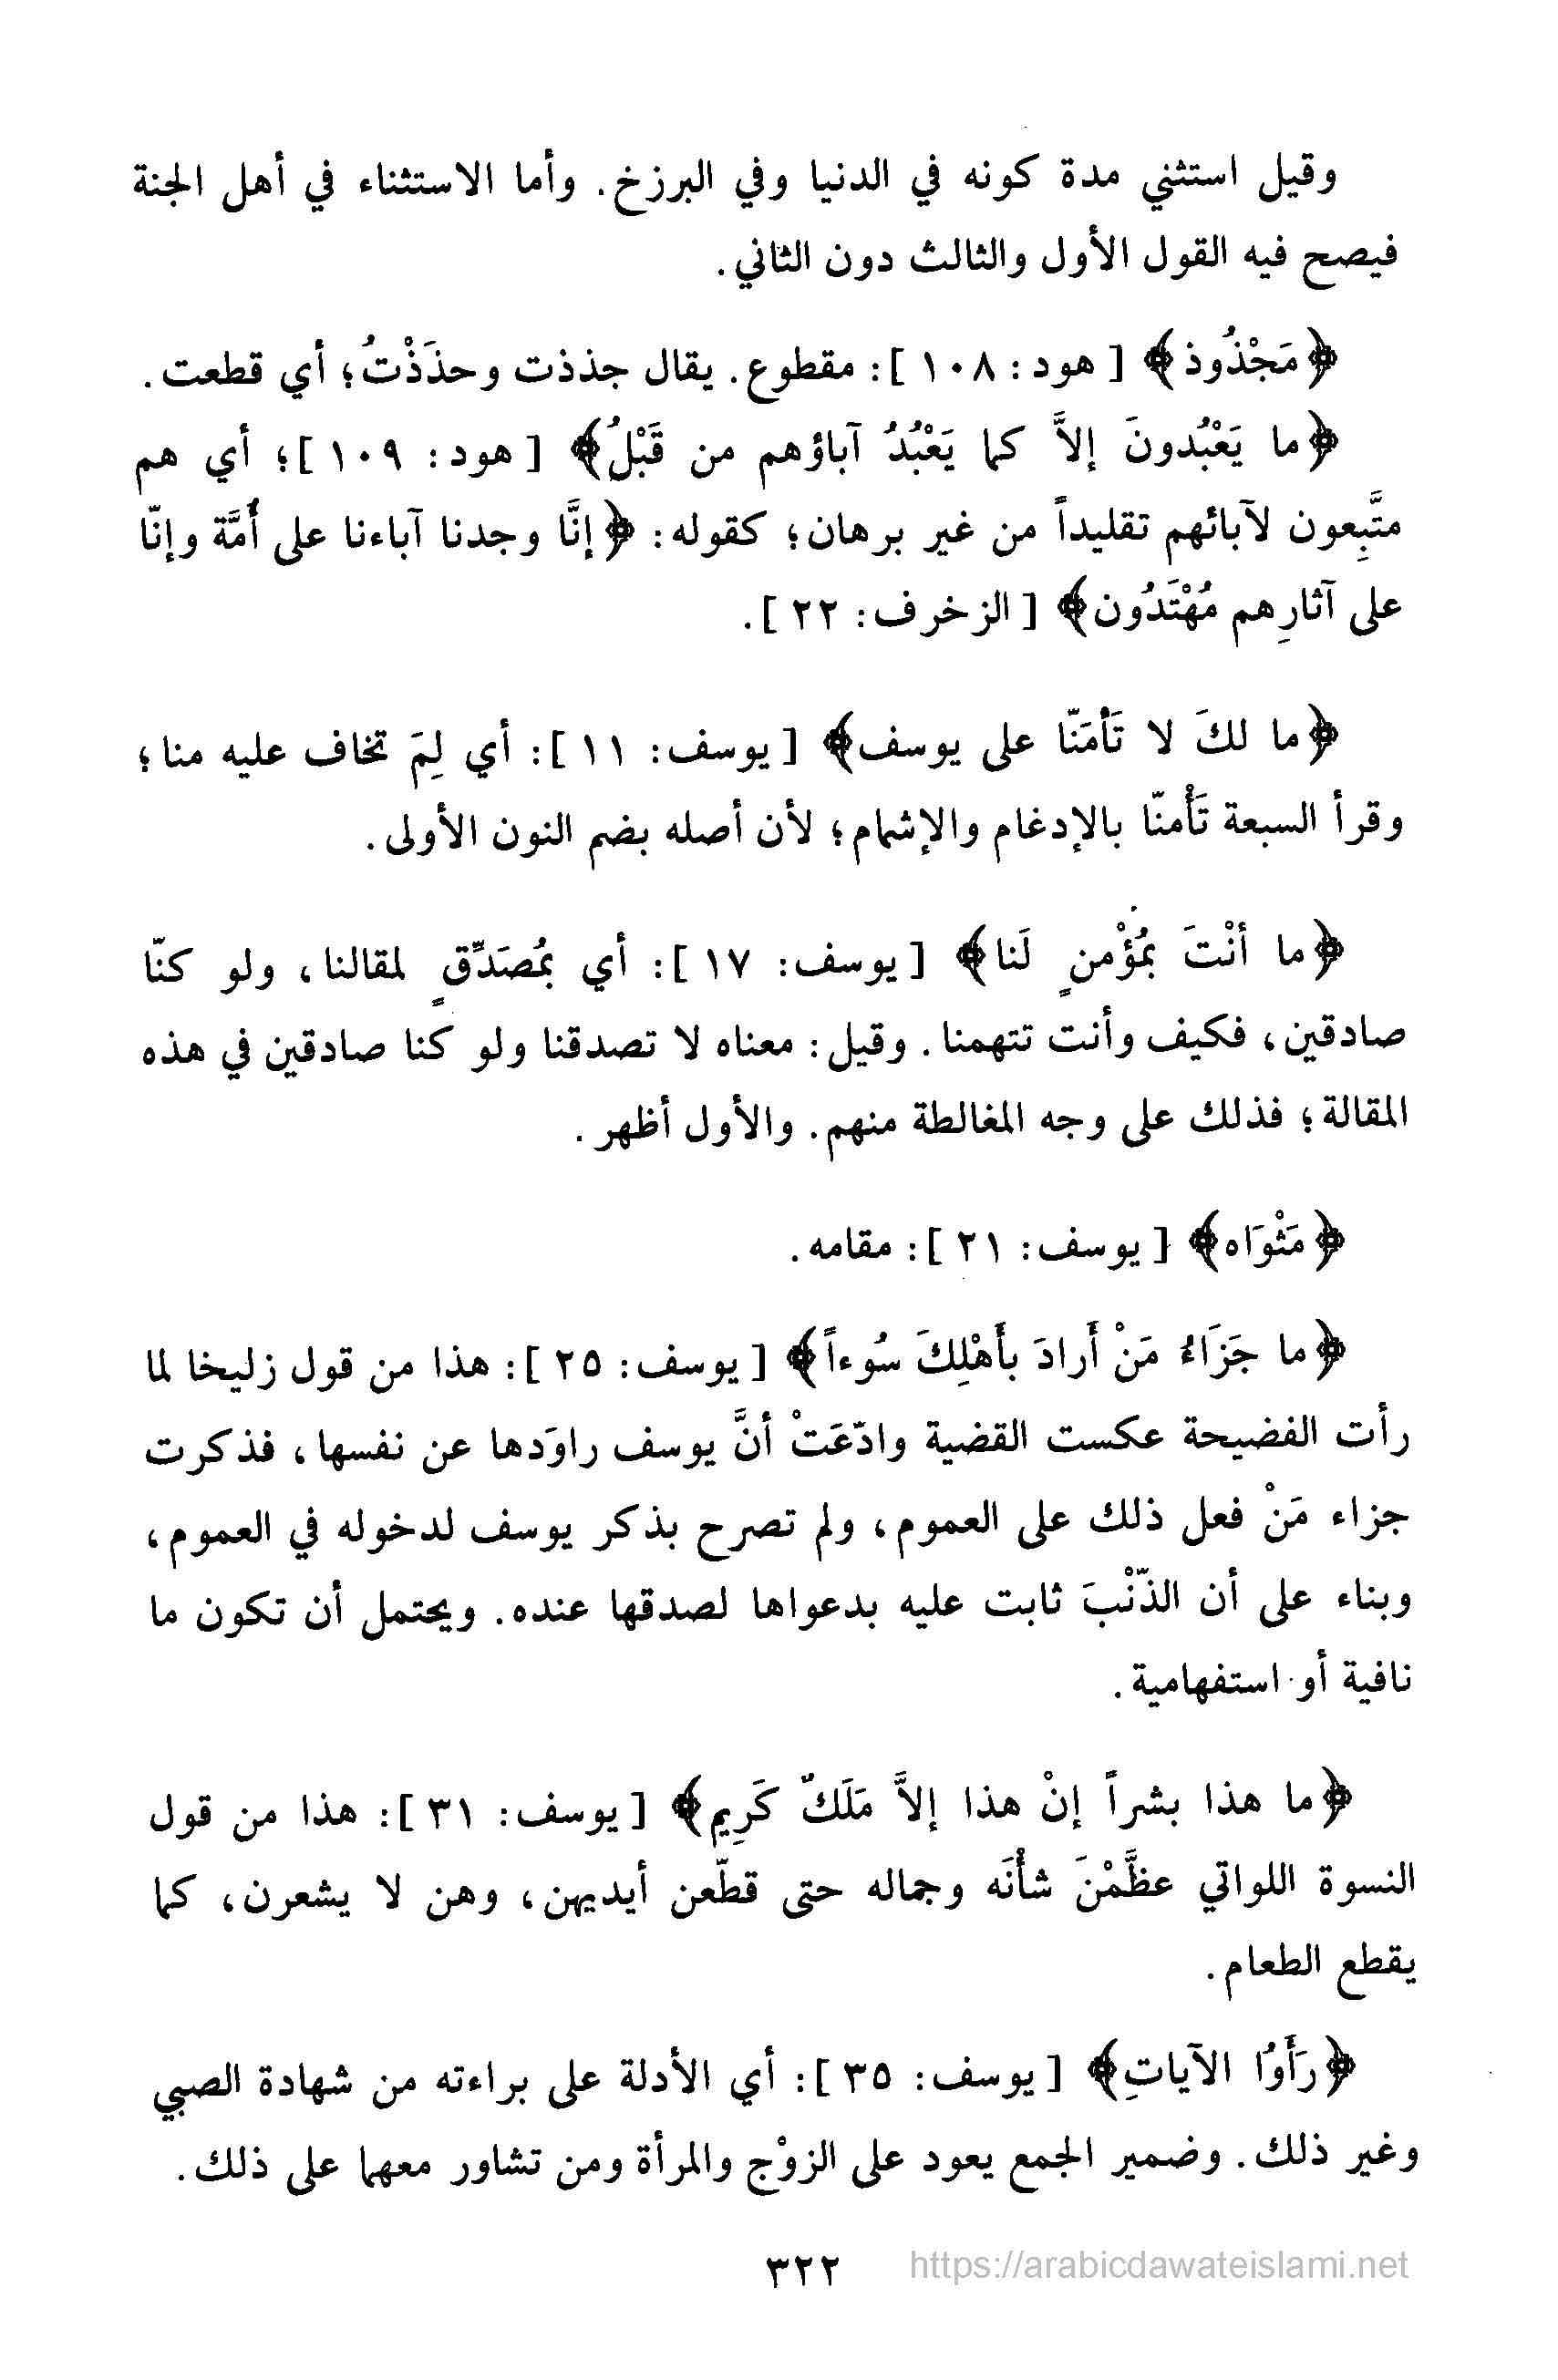 وقيل استثني مدة كونه في الدنيا وفي البرزخ. وأما الاستثناء في أهل الجنة
فيصح فيه القول الأول والثالث دون الثاني.
﴿مَجْذُوذ﴾ [هود: ١٠٨]: مقطوع. يقال جذذت وحذَذْتُ؛ أي قطعت.
﴿ما يَعْبُدونَ إلاَّ كما يَعْبُدُ آباؤهم من قَبْلُ﴾ [هود: ١٠٩]؛ أي هم
متَّبِعون لآبائهم تقليداً من غير برهان؛ كقوله: ﴿إنَّا وجدنا آباءنا على أُمَّة وإنّا
على آثارِهم مُهْتَدُون﴾ [الزخرف: ٢٢].
﴿ما لكَ لا تَأمَنّا على يوسف﴾ [يوسف: ١١]: أي لِمَ تخاف عليه منا؛
وقرأ السبعة تَأْمنّا بالإدغام والإشمام؛ لأن أصله بضم النون الأولى.
﴿ما أنْتَ بمُؤْمنٍ لَنا﴾ [يوسف: ١٧]: أي بمُصَدِّقٍ لمقالنا، ولو كنّا
صادقين، فكيف وأنت تتهمنا. وقيل: معناه لا تصدقنا ولو كنا صادقين في هذه
المقالة؛ فذلك على وجه المغالطة منهم. والأول أظهر.
﴿مَثْوَاه﴾ [يوسف: ٢١]: مقامه.
﴿ما جَزَاءُ مَنْ أَرادَ بأَهْلِكَ سُوءاً﴾ [يوسف: ٢٥]: هذا من قول زليخا لما
رأت الفضيحة عكست القضية وادّعَتْ أنَّ يوسف راوَدها عن نفسها، فذكرت
جزاء مَنْ فعل ذلك على العموم، ولم تصرح بذكر يوسف لدخوله في العموم،
وبناء على أن الذّنْبَ ثابت عليه بدعواها لصدقها عنده. ويحتمل أن تكون ما
نافية أو استفهامية.
﴿ما هذا بشراً إنْ هذا إلاَّ مَلَكٌ كَرِيم﴾ [يوسف: ٣١]: هذا من قول
النسوة اللواتي عظَّمْنَ شأْنَه وجماله حتى قطّعن أيديهن، وهن لا يشعرن، كما
يقطع الطعام.
﴿رَأَوُا الآياتِ﴾ [يوسف: ٣٥]: أي الأدلة على براءته من شهادة الصبي
وغير ذلك. وضمير الجمع يعود على الزوْج والمرأة ومن تشاور معهما على ذلك.
٣٢٢
https://arabicdawateislami.net